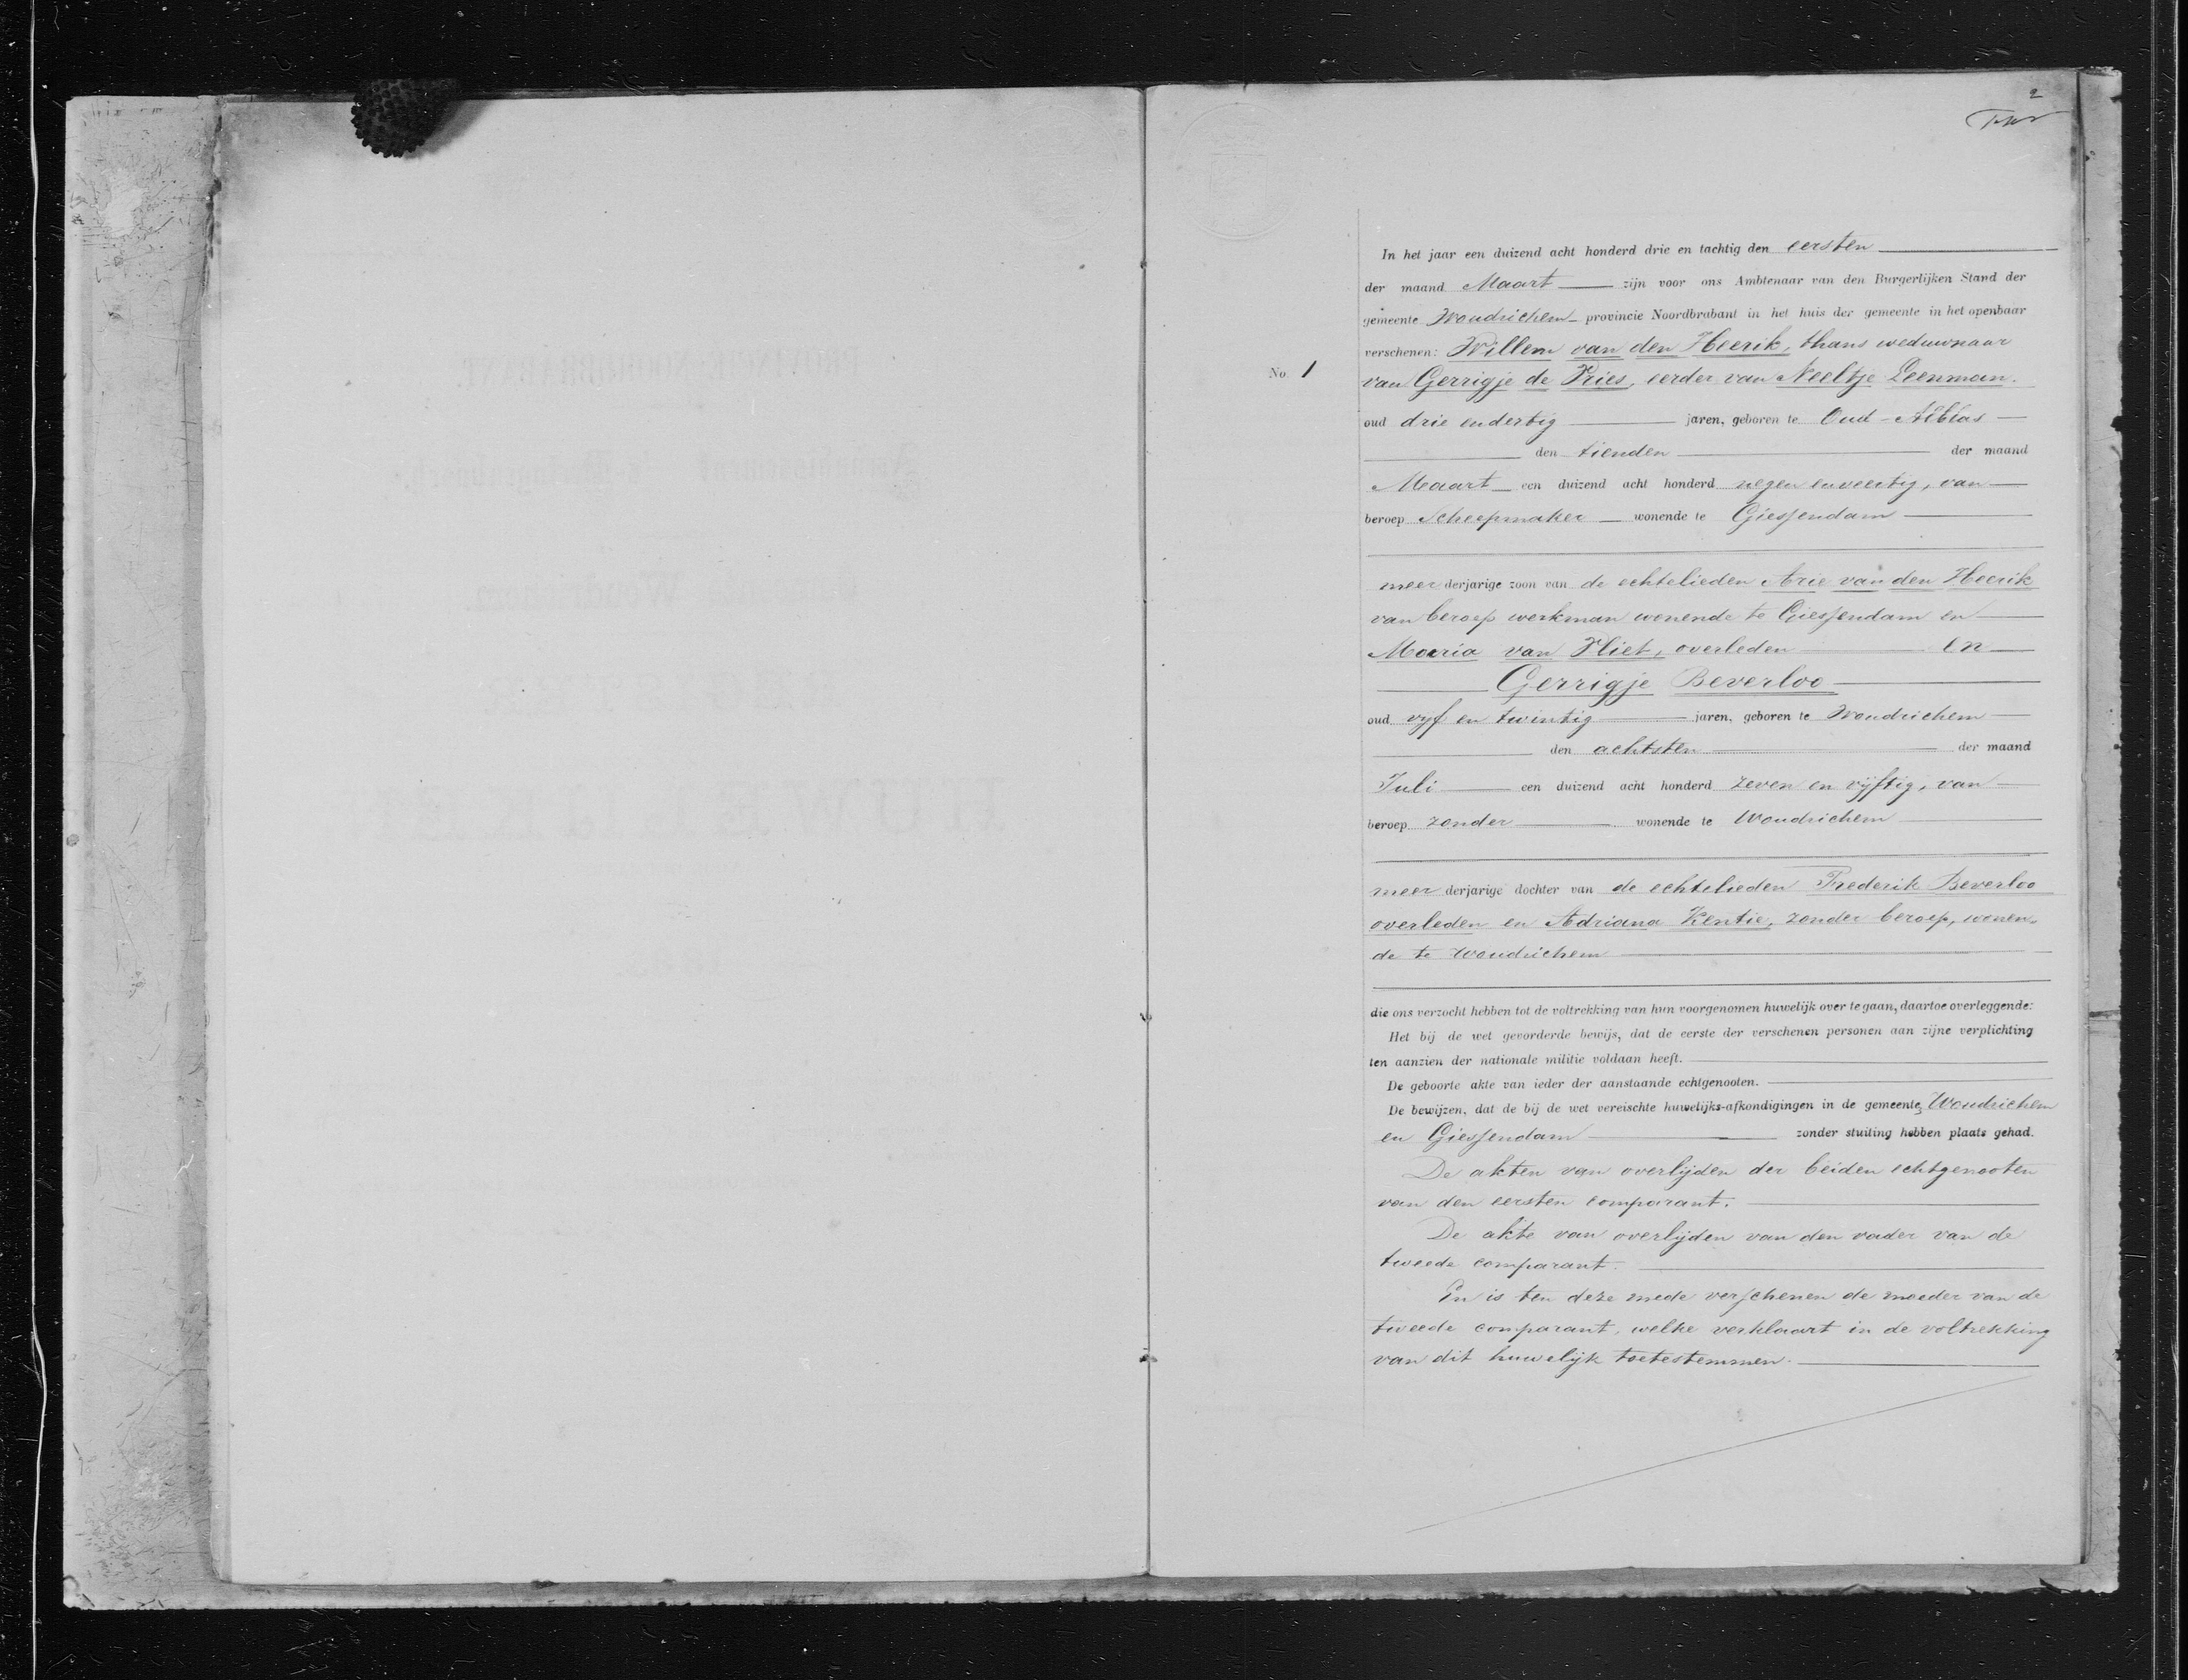 2
No. 1
In het jaar een duizend acht honderd drie en tachtig den eersten
der maand Maart zijn voor ons Ambtenaar van den Burgerlijken Stand der
gemeente Woudrichem provincie Noordbrabant in het huis der gemeente in het openbaar
verschenen: Willem van den Heerik, thans weduwnaar
van Gerrigje de Vries, eerder van Neeltje Leenman.
oud drie en dertig jaren, geboren te Oud-Alblas
den tienden der maand
Maart een duizend acht honderd negen en veertig, van
beroep Scheepmaker wonende te Giessendam
meer derjarige zoon van de echtelieden Arie van den Heerik
van beroep werkman wonende te Giessendam en
Maria van Vliet, overleden en
Gerrigje Beverloo
oud vijf en twintig jaren, geboren te Woudrichem
den achtsten der maand
Juli een duizend acht honderd zeven en vijftig, van
beroep zonder wonende te Woudrichem
meer derjarige dochter van de echtelieden Frederik Beverloo
overleden en Adriana Kentie, zonder beroep, wonen-
de te Woudrichem
die ons verzocht hebben tot de voltrekking van hun voorgenomen huwelijk over te gaan, daartoe overleggende:
Het bij de wet gevorderde bewijs, dat de eerste der verschenen personen aan zijne verplichting
ten aanzien der nationale militie voldaan heeft.
De geboorte akte van ieder der aanstaande echtgenooten.
De bewijzen, dat de bij de wet vereischte huwelijks-afkondigingen in de gemeentes Woudrichem
en Giessendam zonder stuiting hebben plaats gehad.
De akten van overlijden der beiden echtgenooten
van den eersten comparant.
De akte van overlijden van den vader van de
tweede comparant.
En is ten deze mede verschenen de moeder van de
tweede comparant, welke verklaart in de voltrekking
van dit huwelijk toetestemmen.